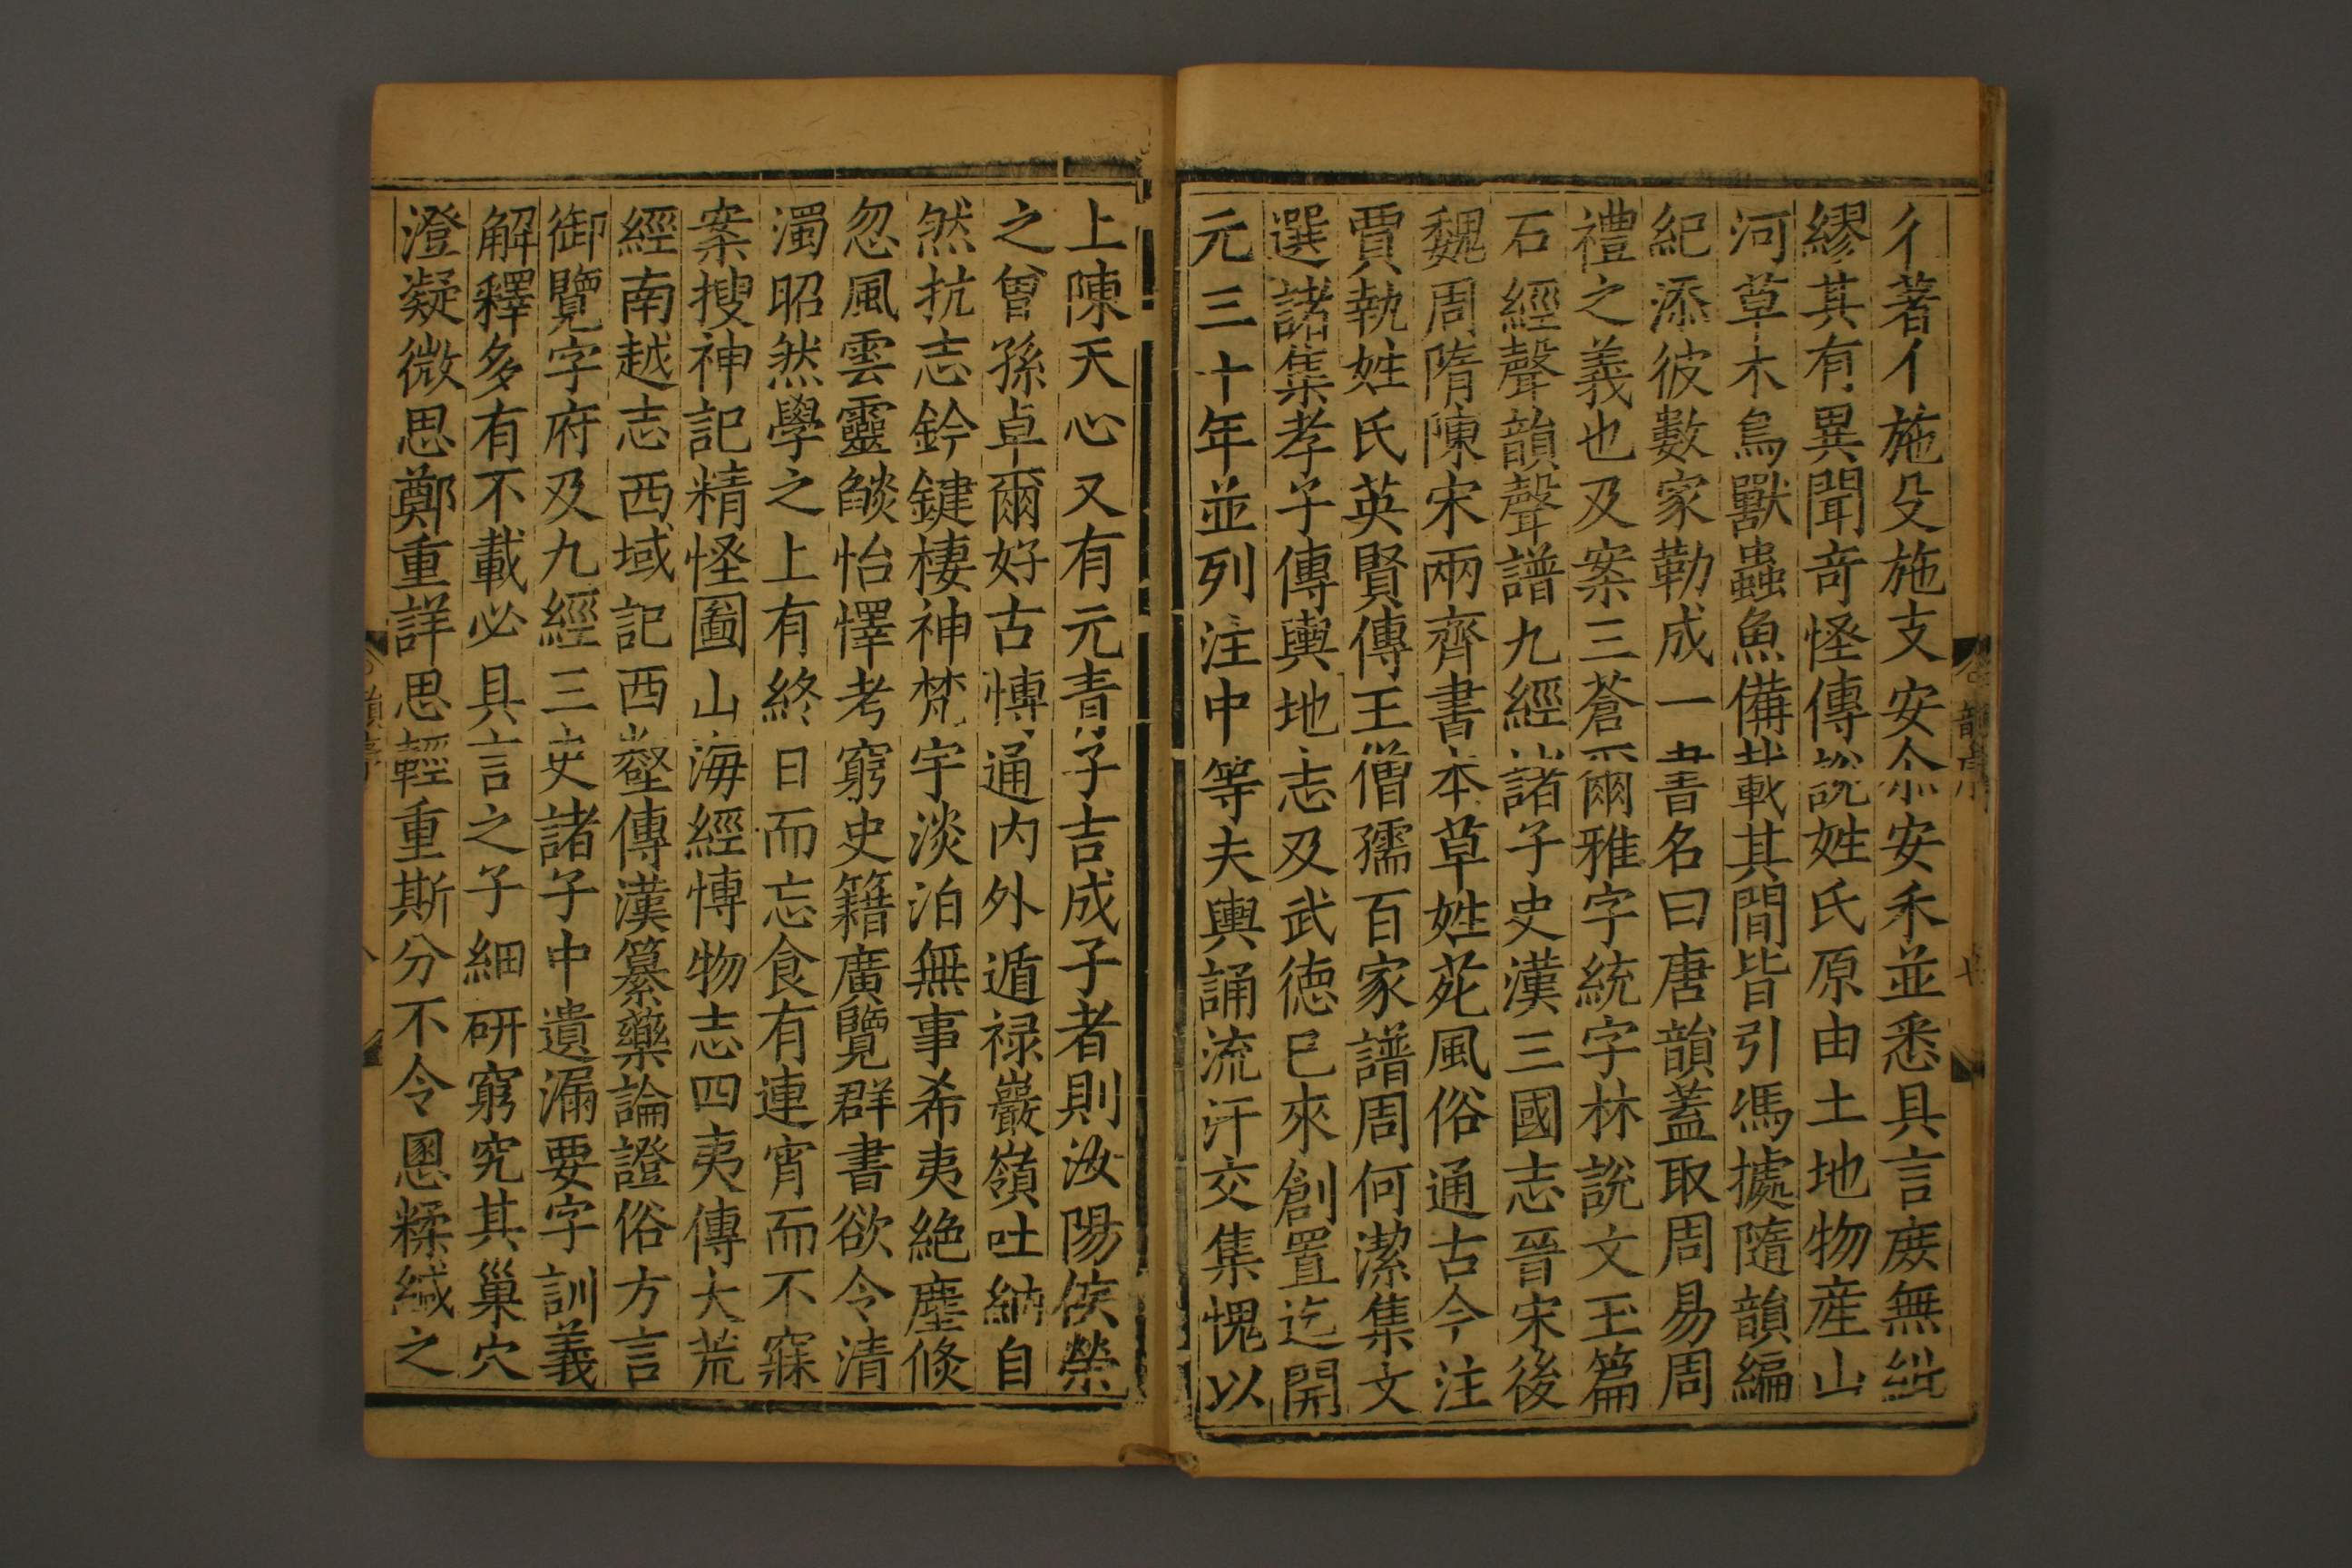 彳著亻施殳施支安尒安禾並悉具言庻無紕
繆其有異聞竒怪傳說姓氏原由土地物産山
河草木鳥獸蟲魚備載其間皆引馮據隨韻編
紀添彼數家勒成一書名曰唐韻蓋取周易周
禮之義也及案三蒼爾雅字統字林說文玉篇
石經聲韻聲譜九經諸子史漢三國志晉宋後
魏周隋陳宋兩齊書本草姓苑風俗通古今注
賈執姓氏英賢傳王僧孺百家譜周何潔集文
選諸集孝子傳輿地志及武德已來創置迄開
元三十年並列注中等夫輿誦流汗交集愧以
上陳天心又有元青子吉成子者則汝陽侯榮
之曾孫卓爾好古博通内外遁禄巖嶺吐納自
然抗志鈐鍵棲神梵宇淡泊無事希夷絶塵倐
忽風雲靈燄怡懌考窮史籍廣覽群書欲令清
濁昭然學之上有終日而忘食有連宵而不寐
案搜神記精怪圖山海經博物志四夷傳大荒
經南越志西域記西壑傳漢纂藥論證俗方言
御覽字府及九經三史諸子中遺漏要字訓義
解釋多有不載必具言之子細研窮究其巢穴
澄凝微思鄭重詳思輕重斯分不令慁糅緘之